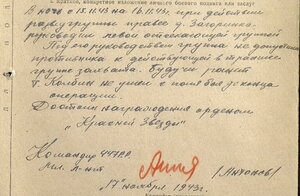 I. Краткое, конкретное изложение личного боевого подвига или заслуг
В ночь с 17.11.43 на 18.11.43г. при действии
разведгруппы правее д. Загорника
руководил левой отсекающей группой
Под его руководством группа не допустила
противника к действующей в траншее
группе захвата. Будучи ранен
т. Колбин не ушел с поля боя до конца
операции.
Достоин награждения орденом
„Красной Звезды"
Командир 447 РР
Мл. л-нт
(Антонов)
17 ноября 1943г.